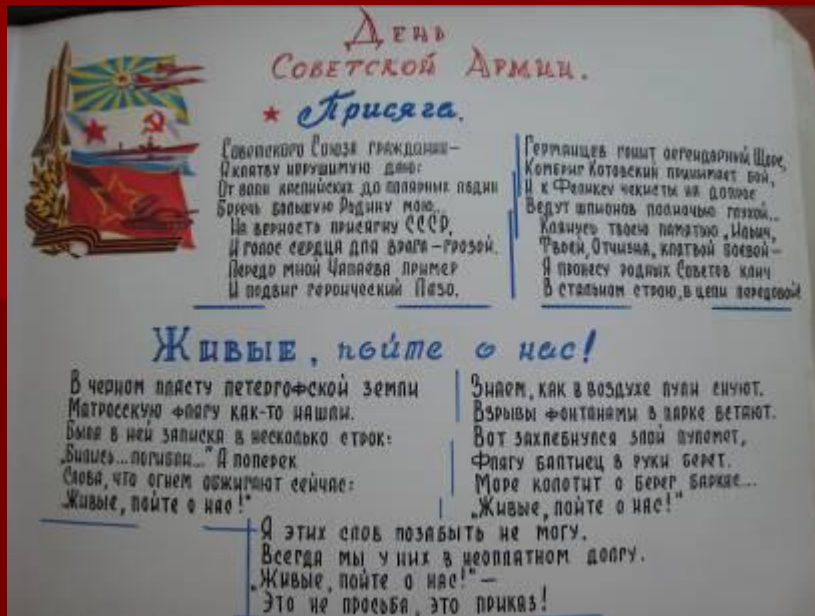 День
Советской Армии.
Присяга.
Советского Союза гражданин–
Я клятву нерушимую даю:
От волн каспийских до полярных льдин
Беречь большую Родину мою.
На верность присягну СССР,
И голос сердца для врага – грозой.
Передо мной Чапаева пример
И подвиг героический Лазо.
Германцев гонит легендарный Щорс,
Комбриг Котовский принимает бой,
И к Феликсу чекисты на допрос
Ведут шпионов полночью глухой...
Клянусь твоею памятью, Ильич,
Твоей, Отчизна, клятвой боевой –
Я пронесу родных Советов клич
В стальном строю, в цепи передовой!
Живые, пойте о нас!
В черном пласту петергофской земли
Матросскую флягу как-то нашли.
Была в ней записка в несколько строк:
„Бились... погибли..." А поперек
Слова, что огнем обжигают сейчас:
„Живые, пойте о нас!"
Знаем, как в воздухе пули снуют.
Взрывы фонтанами в парке встают.
Вот захлебнулся злой пулемот,
Флягу балтиец в руки берет.
Море колотит о берег баркас...
„Живые, пойте о нас!"
Я этих слов позабыть не могу.
Всегда мы у них в неоплатном долгу.
„Живые, пойте о нас!" –
Это не просьба, это приказ!